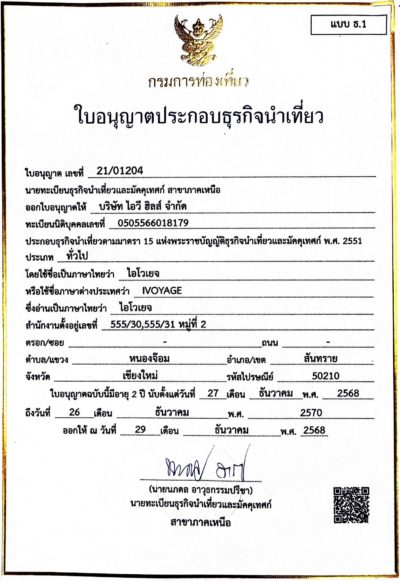 แบบ ธ.1
กรมการท่องเที่ยว
ใบอนุญาตประกอบธุรกิจนำเที่ยว
ใบอนุญาต เลขที่ 21/01204
นายทะเบียนธุรกิจนำเที่ยวและมัคคุเทศก์ สาขาภาคเหนือ
ออกใบอนุญาตให้ บริษัท ไอวี ฮิลส์ จำกัด
ทะเบียนนิติบุคคลเลขที่ 0505566018179
ประกอบธุรกิจนำเที่ยวตามมาตรา 15 แห่งพระราชบัญญัติธุรกิจนำเที่ยวและมัคคุเทศก์ พ.ศ. 2551
ประเภท ทั่วไป
โดยใช้ชื่อเป็นภาษาไทยว่า ไอโวเยจ
หรือใช้ชื่อภาษาต่างประเทศว่า IVOYAGE
ซึ่งอ่านเป็นภาษาไทยว่า ไอโวเยจ
สำนักงานตั้งอยู่เลขที่ 555/30,555/31 หมู่ที่ 2
ตรอก/ซอย - ถนน -
ตำบล/แขวง หนองจ๊อม อำเภอ/เขต สันทราย
จังหวัด เชียงใหม่ รหัสไปรษณีย์ 50210
ใบอนุญาตฉบับนี้มีอายุ 2 ปี นับตั้งแต่วันที่ 27 เดือน ธันวาคม พ.ศ. 2568
ถึงวันที่ 26 เดือน ธันวาคม พ.ศ. 2570
ออกให้ ณ วันที่ 29 เดือน ธันวาคม พ.ศ. 2568
(นายนภดล อาวุธกรรมปรีชา)
นายทะเบียนธุรกิจนำเที่ยวและมัคคุเทศก์
สาขาภาคเหนือ